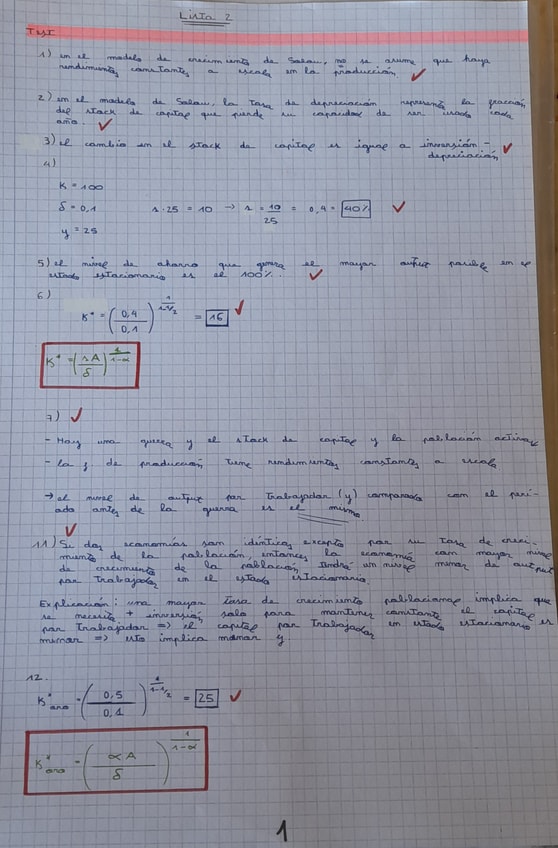 Lista 2
Test
1) en el modelo de crecimiento de Solow, no se asume que haya
rendimientos constantes a escala en la producción. ✓
2) en el modelo de Solow, la tasa de depreciación representa la fracción
del stack de capital que pierde su capacidad de ser usado cada
año. ✓
3) el cambio en el stack de capital es igual a inversión -
depreciación ✓
4)
K = 100
δ = 0,1 s·25 = 10 → s = 10/25 = 0,4 = 40% ✓
y = 25
5) el nivel de ahorro que genera el mayor output posible en el
estado estacionario es el 100%. ✓
6)
K* = (0,4/0,1)^(1/(1-1/2)) = 16 ✓
K* = (sA/δ)^(1/(1-α))
7) ✓
- Hay una guerra y el stack de capital y la población activa
- la f de producción tiene rendimientos constantes a escala
→ el nivel de output por trabajador (y) comparado con el perí-
odo antes de la guerra es el mismo
✓
11) Si dos economías son idénticas excepto por su tasa de creci-
miento de la población, entonces la economía con mayor nivel
de crecimiento de la población tendrá un nivel menor de output
por trabajador en el estado estacionario.
Explicación: una mayor tasa de crecimiento poblacional implica que
se necesita + inversión solo para mantener constante el capital
por trabajador => el capital por trabajador en estado estacionario es
menor => esto implica menor y
12.
K*oro = (0,5/0,1)^(1/(1-1/2)) = 25 ✓
K*oro = (αA/δ)^(1/(1-α))
1